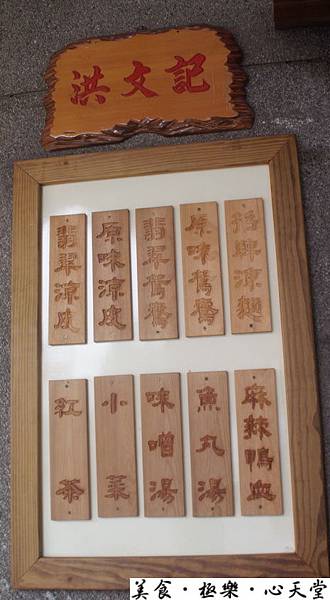 洪文記
招牌涼麵
原味鴛鴦
翡翠鴛鴦
原味涼皮
翡翠涼皮
麻辣鴨血
魚丸湯
味噌湯
小菜
紅茶
美食‧極樂‧心天堂